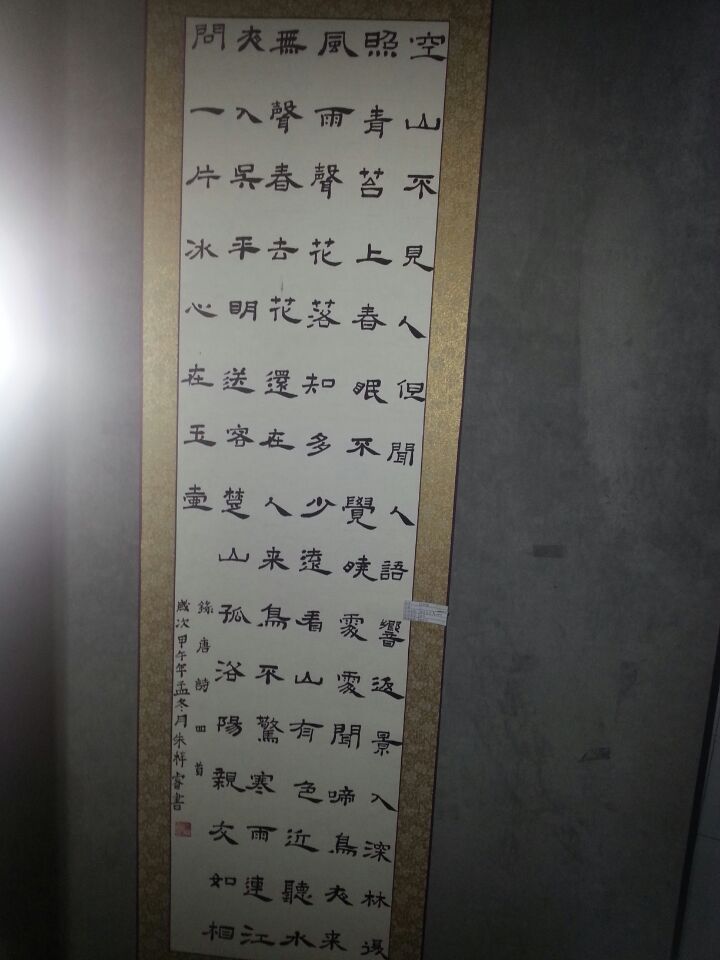 空山不見人但聞人語響返景入深林復
照青苔上春眠不覺曉處處聞啼鳥夜来
風雨聲花落知多少遠看山有色近聽水
無聲春去花還在人来鳥不驚寒雨連江
夜入吳平明送客楚山孤洛陽親友如相
問一片冰心在玉壺
錄唐詩四首
歲次甲午年孟冬月朱梓睿書